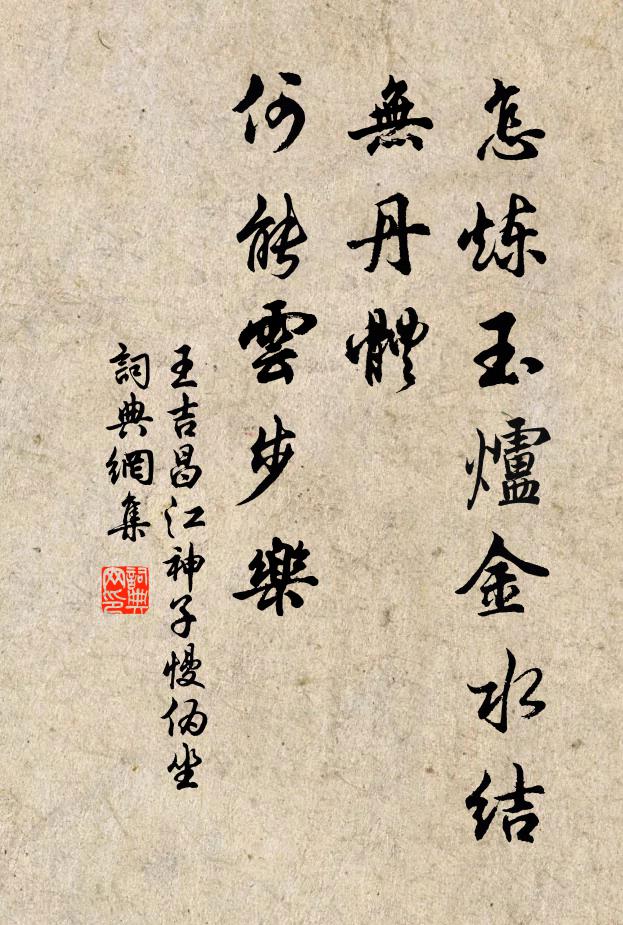 怎炼玉爐金水結
無丹體
何能雲步樂
王吉昌江神子慢偽坐
詞典網集
詞典
网印